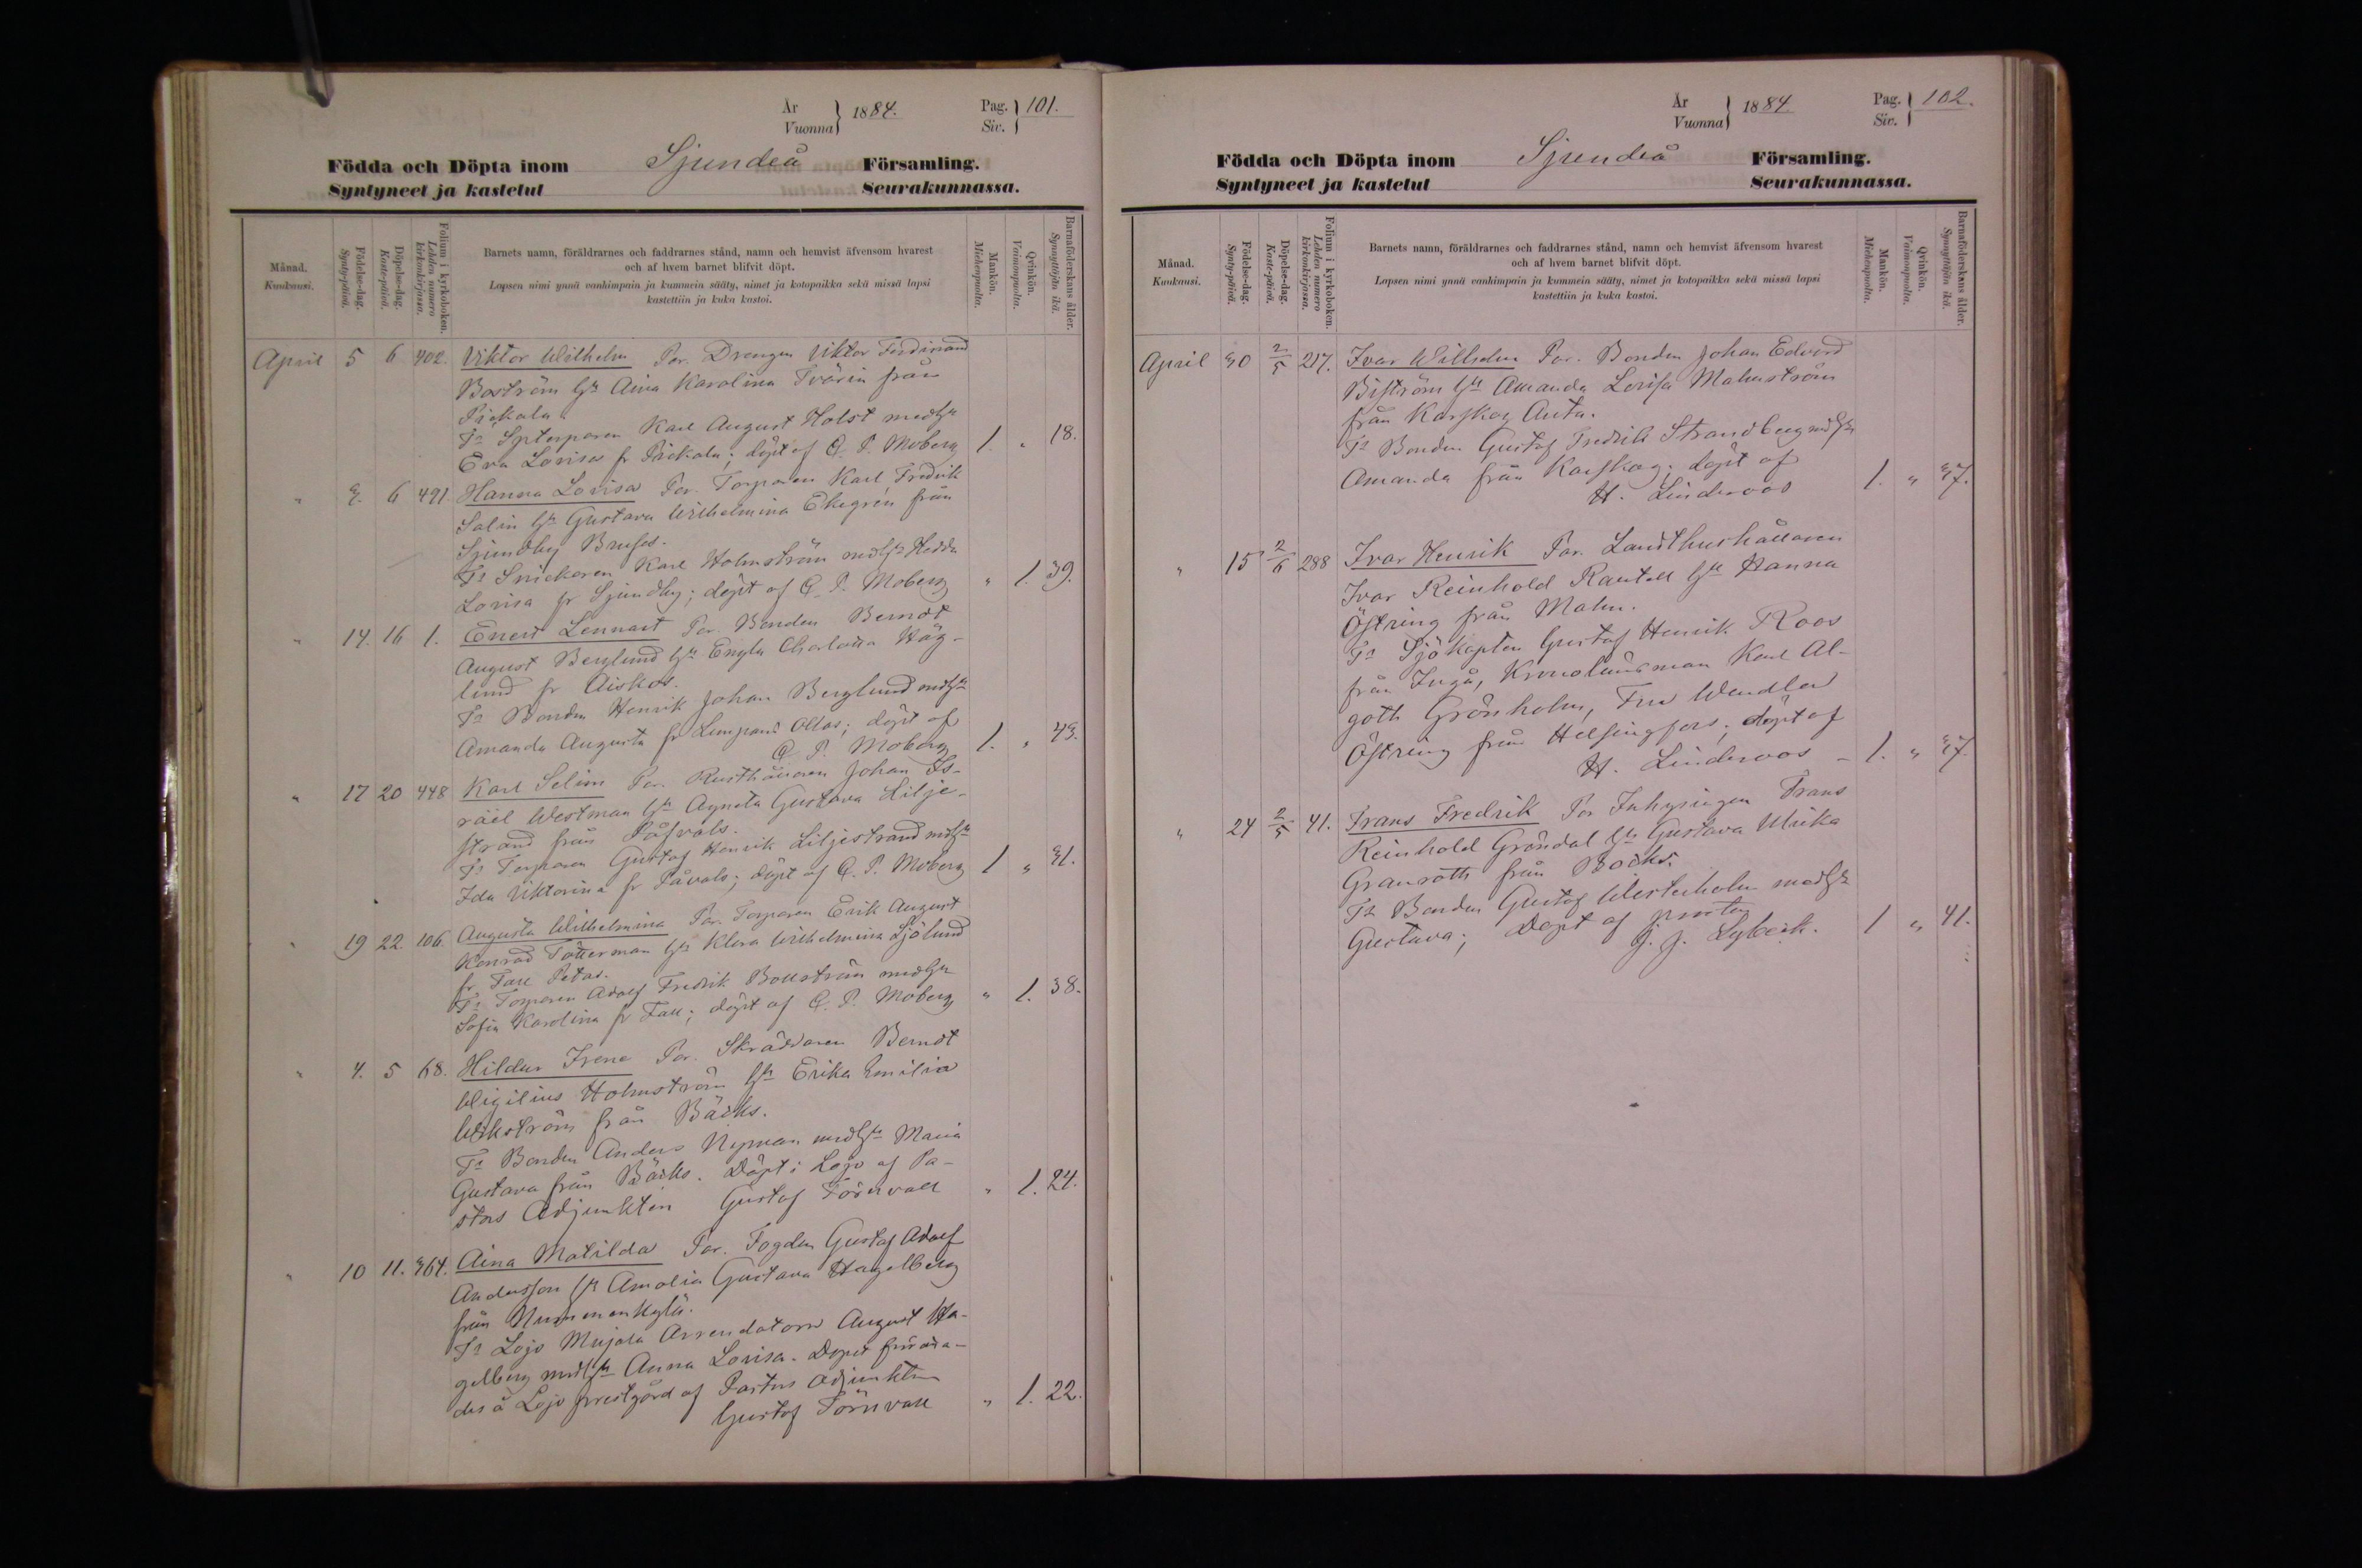 År
Vuonna } 1884. Pag. Siv. } 101.
Födda och Döpta inom Sjundeå Församling.
Syntyneet ja kastetut Seurakunnassa.
Månad.
Kuukausi.
Födelse-dag.
Synty-päivä.
Döpelse-dag.
Kaste-päivä.
Folium i kyrkoboken.
Lehden numero
kirkonkirjassa.
Barnets namn, föräldrarnes och faddrarnes stånd, namn och hemvist äfvensom hvarest
och af hvem barnet blifvit döpt.
Lapsen nimi ynnä vanhimpain ja kummein sääty, nimet ja kotopaikka sekä missä lapsi
kastettiin ja kuka kastoi.
Mankön.
Miehenpuolta.
Qvinkön.
Vaimonpuolta.
Barnaföderskans ålder.
Synnyttöjän ikä.
April 5 6 402. Viktor Wilhelm Par. Drengen Viktor Ferdinand
Boström hu Aina Karolina Tvärin från
Pickala
Fr Karl August Holst med hu
Eva Lovisa fr Pickala; döpt af Q. P. Moberg 1. „ 18.
„ 3. 6 491. Hanna Lovisa Par. Torparen Karl Fredrik
Salin hu Gustava Wilhelmina Ekegrén från
Sjundby Brufes.
Fr Snickaren Karl Holmström med hu Hedda
Lovisa fr Sjundby; döpt af Q. P. Moberg „ 1. 39.
„ 14. 16 1. Enerst Lennart Par. Bonden Berndt
August Berglund hu Engla Charlotta Häg-
lund fr Aiskos.
Fr Bonden Henrik Johan Berglund med hu
Amanda Augusta fr Lempans Ollas; döpt af
Q. P. Moberg 1. „ 43.
„ 17 20 448 Karl Selim Par. Rusthållaren Johan Is-
räel Westman hu Agneta Gustava Lilje-
strand från Påfvals.
Fr Torparen Gustaf Henrik Liljestrand med hu
Ida Viktorina fr Påvals; döpt af Q. P. Moberg 1 „ 31.
„ 19 22. 106 Augusta Wilhelmina Par. Torparen Erik August
Konrad Tötterman hu Klara Wilhelmina Sjölund
fr Fall Petas.
Fr Torparen Adolf Fredrik Bollström med hu
Sofia Karolina fr Fall; döpt af Q. P. Moberg „ 1. 38.
„ 4. 5 68. Hildur Irene Par. Skräddaren Berndt
Wigilius Holmström hu Erika Emilia
Wikström från Bäcks.
Fr Bonden Anders Nyman med hu Maria
Gustava från Bäcks. Döpt i Lojo af Pa-
stors Adjunkten Gustaf Törnvall „ 1. 24.
„ 10 11. 364. Aina Matilda Par. Fogden Gustaf Adolf
Andersson hu Amalia Gustava Hagelberg
från Nummenkylä.
Fr Lojo Mujola Arrendatorn August Ha-
gelberg med hu Anna Lovisa. Döpet förrätta-
des å Lojo prestgård af Pastors Adjunkten
Gustaf Törnvall „ 1. 22.
År
Vuonna } 1884. Pag. Siv. } 102.
Födda och Döpta inom Sjundeå Församling.
Syntyneet ja kastetut Seurakunnassa.
Månad.
Kuukausi.
Födelse-dag.
Synty-päivä.
Döpelse-dag.
Kaste-päivä.
Folium i kyrkoboken.
Lehden numero
kirkonkirjassa.
Barnets namn, föräldrarnes och faddrarnes stånd, namn och hemvist äfvensom hvarest
och af hvem barnet blifvit döpt.
Lapsen nimi ynnä vanhimpain ja kummein sääty, nimet ja kotopaikka sekä missä lapsi
kastettiin ja kuka kastoi.
Mankön.
Miehenpuolta.
Qvinkön.
Vaimonpuolta.
Barnaföderskans ålder.
Synnyttöjän ikä.
April 30 2/5 217. Ivar Wilhelm Par. Bonden Johan Edvard
Biström hu Amanda Lovisa Malmström
från Karskog Anta.
Fr Bonden Gustaf Fredrik Strandberg med hu
Amanda från Karskog; döpt af
H. Linderoos 1. „ 37.
„ 15 2/6 288 Ivar Henrik Par. Landthushållaren
Ivar Reinhold Rautell hu Hanna
Östring från Malm.
Fr Sjökapten Gustaf Henrik Roos
från Ingå, Kronolänsman Karl Al-
goth Grönholm, Fru Wendla
Östring från Helsingfors; döpt af
H. Linderoos 1. „ 37.
„ 24 2/5 41. Frans Fredrik Par Inhysingen Frans
Reinhold Gröndal hu Gustava Ulrika
Granroth från Bäcks.
Fr Bonden Gustaf Westerholm med hu
Gustava; Döpt af prosten
J. J. Lybeck. 1 „ 41.